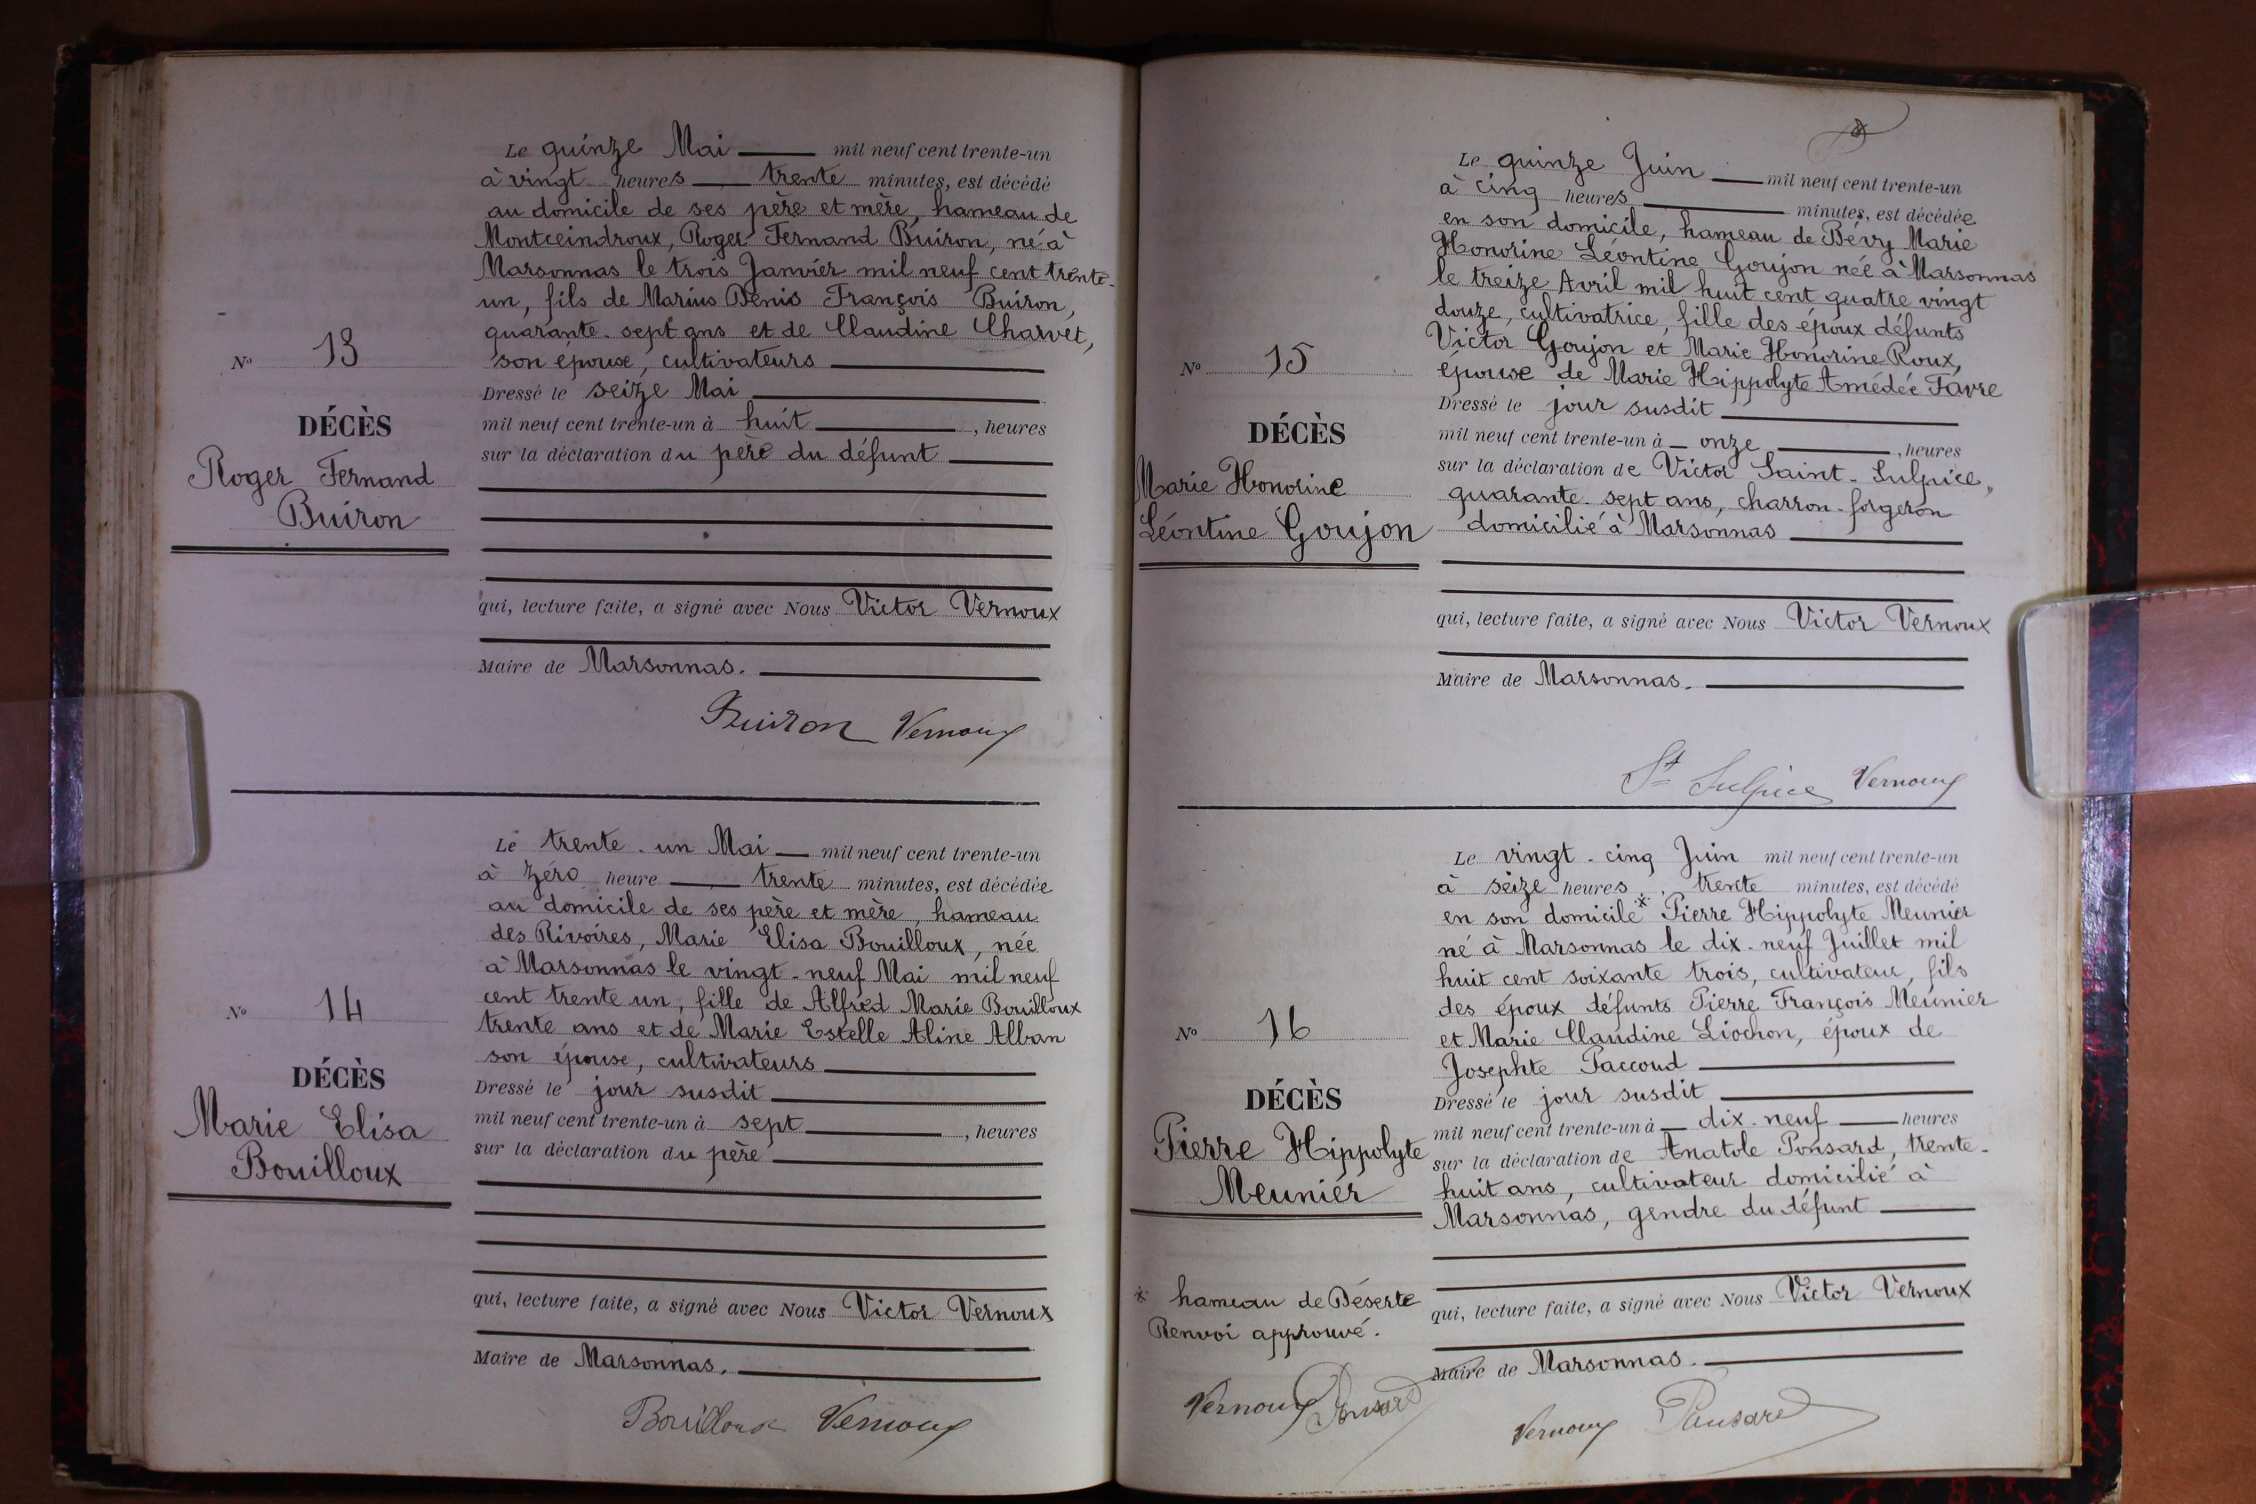 Le quinze Mai mil neuf cent trente-un
à vingt heures trente minutes, est décédé
au domicile de ses père et mère, hameau de
Montceindroux, Roger Fernand Buiron, né à
Marsonnas le trois Janvier mil neuf cent trente-
un, fils de Marius Denis François Buiron,
quarante-sept ans et de Claudine Charvet,
N° 13
son épouse, cultivateurs
Dressé le seize Mai
DÉCÈS
mil neuf cent trente-un à huit, heures
sur la déclaration du père du défunt
Roger Fernand
Buiron
qui, lecture faite, a signé avec Nous Victor Vernoux
Maire de Marsonnas.
Buiron Vernoux
Le trente-un Mai mil neuf cent trente-un
à zéro heure trente minutes, est décédée
au domicile de ses père et mère, hameau
des Rivoires, Marie Elisa Bouilloux, née
à Marsonnas le vingt-neuf Mai mil neuf
cent trente un, fille de Alfred Marie Bouilloux
N° 14
trente ans et de Marie Estelle Aline Alban
son épouse, cultivateurs
DÉCÈS
Dressé le jour susdit
Marie Elisa
mil neuf cent trente-un à sept, heures
sur la déclaration du père
Bouilloux
qui, lecture faite, a signé avec Nous Victor Vernoux
Maire de Marsonnas.
Bouilloux Vernoux
Le quinze Juin mil neuf cent trente-un
à cinq heures minutes, est décédée
en son domicile, hameau de Bévy Marie
Honorine Léontine Goujon née à Marsonnas
le treize Avril mil huit cent quatre vingt
douze, cultivatrice, fille des époux défunts
Victor Goujon et Marie Honorine Roux,
N° 15
épouse de Marie Hippolyte Amédée Favre
Dressé le jour susdit
DÉCÈS
mil neuf cent trente-un à onze, heures
sur la déclaration de Victor Saint-Sulpice,
Marie Honorine
quarante-sept ans, charron-forgeron
Léontine Goujon
domicilié à Marsonnas
qui, lecture faite, a signé avec Nous Victor Vernoux
Maire de Marsonnas.
St Sulpice Vernoux
Le vingt-cinq Juin mil neuf cent trente-un
à seize heures trente minutes, est décédé
en son domicile * Pierre Hippolyte Meunier
né à Marsonnas le dix-neuf Juillet mil
huit cent soixante trois, cultivateur, fils
des époux défunts Pierre François Meunier
N° 16
et Marie Claudine Liochon, époux de
Josephte Paccoud
DÉCÈS
Dressé le jour susdit
mil neuf cent trente-un à dix-neuf heures
Pierre Hippolyte
sur la déclaration de Anatole Ponsard, trente-
Meunier
huit ans, cultivateur domicilié à
Marsonnas, gendre du défunt
* hameau de Béserte
Renvoi approuvé.
qui, lecture faite, a signé avec Nous Victor Vernoux
Maire de Marsonnas.
Vernoux Ponsard
Vernoux Ponsard